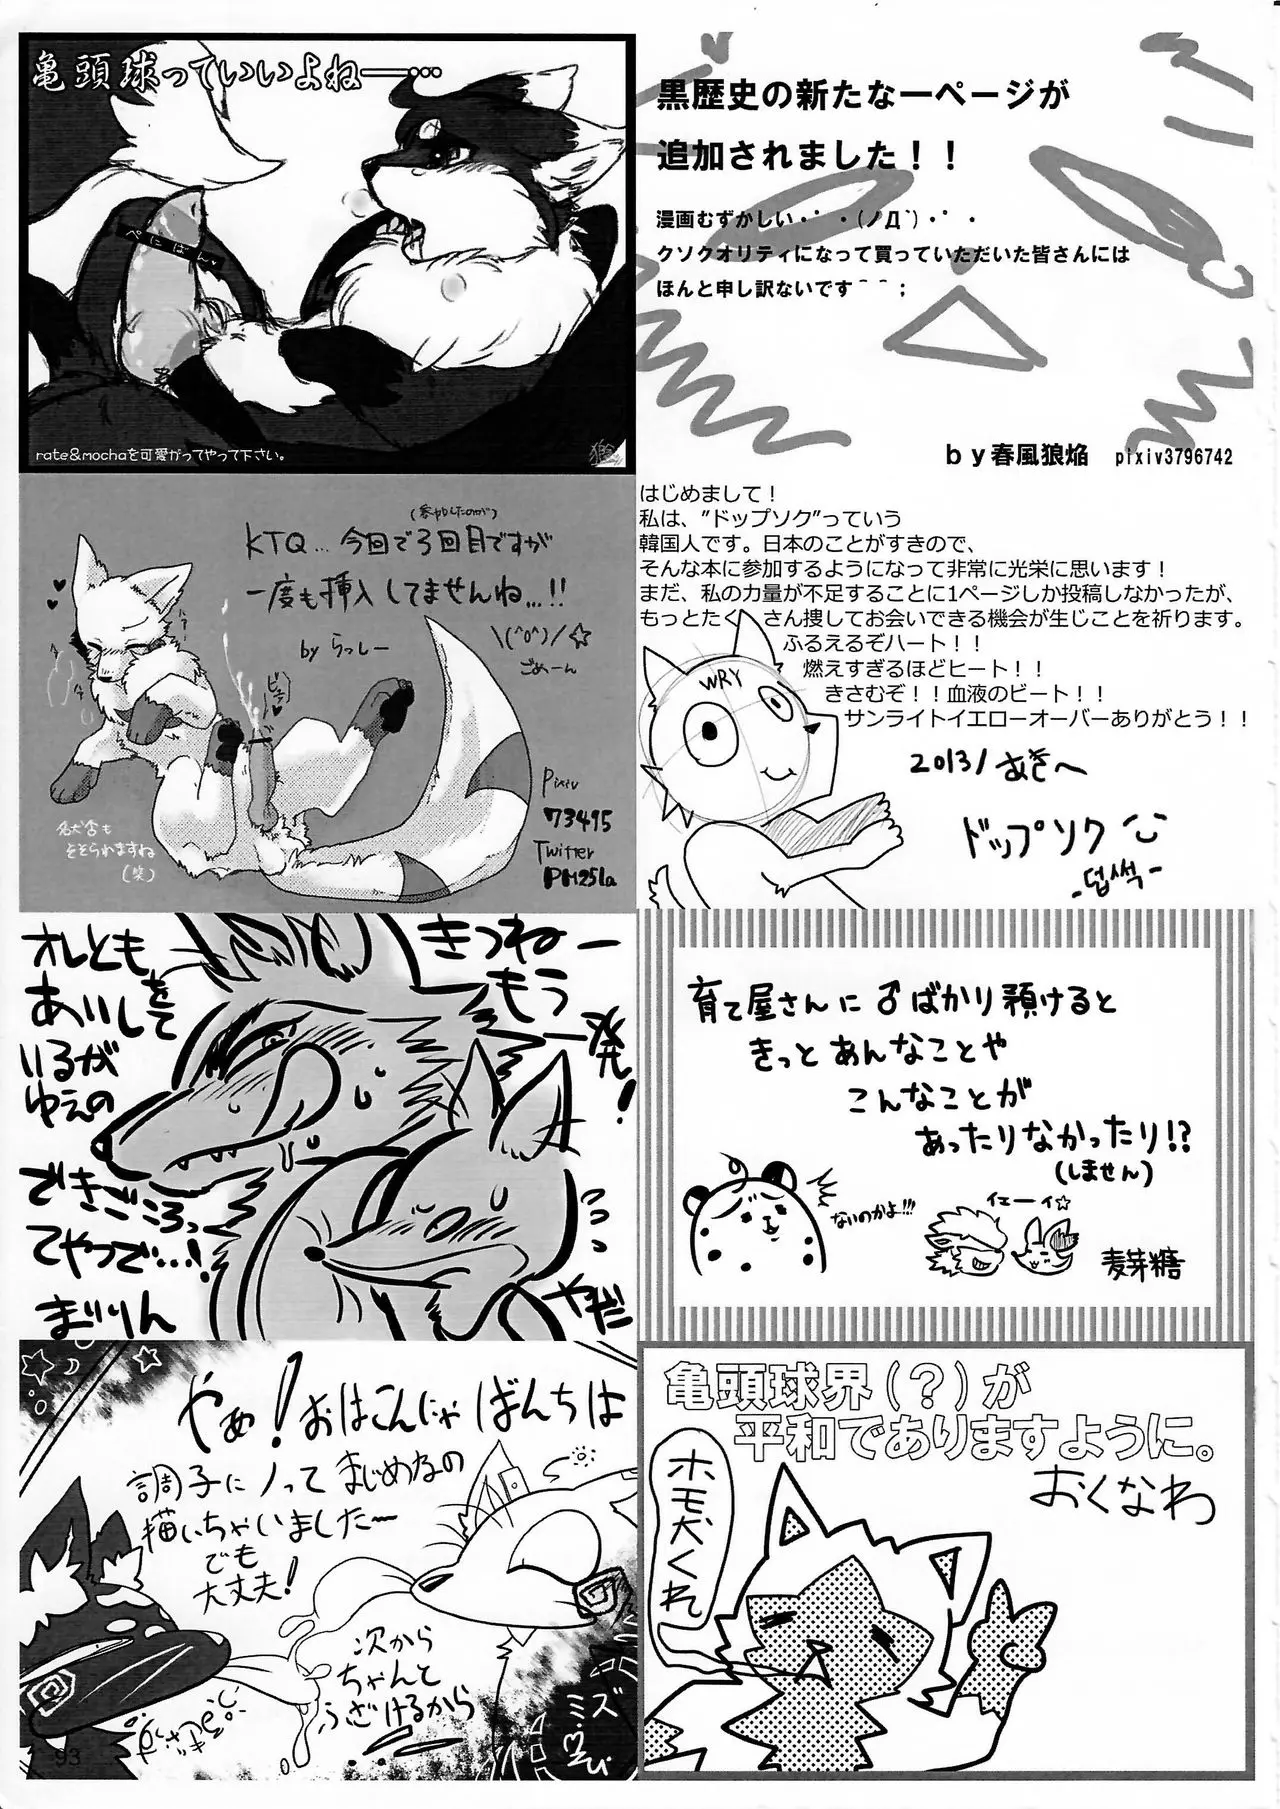 亀頭球っていいよねー…
ぺにばん♥
rate&mochaを可愛がってやって下さい。
黒歴史の新たな一ページが
追加されました！！
漫画むずかしい・゜・(ノД`)・゜・
クソクオリティになって買っていただいた皆さんには
ほんと申し訳ないです＾＾；
by春風狼焔 pixiv3796742
(参加したのが)
KTQ…今回で3回目ですが
一度も挿入してませんね…!!
by らっしー
\(^o^)/☆
ごめーん
Pixiv
73495
Twitter
PM251a
そそられますね
(笑)
はじめまして！
私は、”ドップソク”っていう
韓国人です。日本のことがすきので、
そんな本に参加するようになって非常に光栄に思います！
まだ、私の力量が不足することに1ページしか投稿しなかったが、
もっとたくさん捜してお会いできる機会が生じことを祈ります。
ふるえるぞハート！！
燃えすぎるほどヒート！！
きさむぞ！！血液のビート！！
サンライトイエローオーバーありがとう！！
WRY
2013/あきへ
ドップソク
-덥썩-
きつねー
もう
一発！
オレとも
あいしをて
いるが
ゆえの
できごころっ
てやつで…！
まりりん
やだ
育て屋さんに♂ばかり預けると
きっとあんなことや
こんなことが
あったりなかったり!?
(しません)
ないのかよ!!!
イエーイ☆
麦芽糖
やぁ！おはこんにゃばんちは
調子にノってまじめなの
描いちゃいました～
でも
大丈夫！
次から
ちゃんと
ふざけるから
93
亀頭球界（？）が
平和でありますように。
おくなわ
ホモ犬くれ